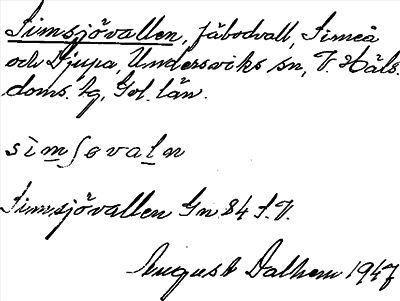 Simsjövallen, fäbodvall, Simeå
och Djupa, Undersviks sn, V. Häls.
doms. tg, Gvl. län.
sìmʃøvaln
Simsjövallen Gn 84 S.V.
August Dalhem 1947